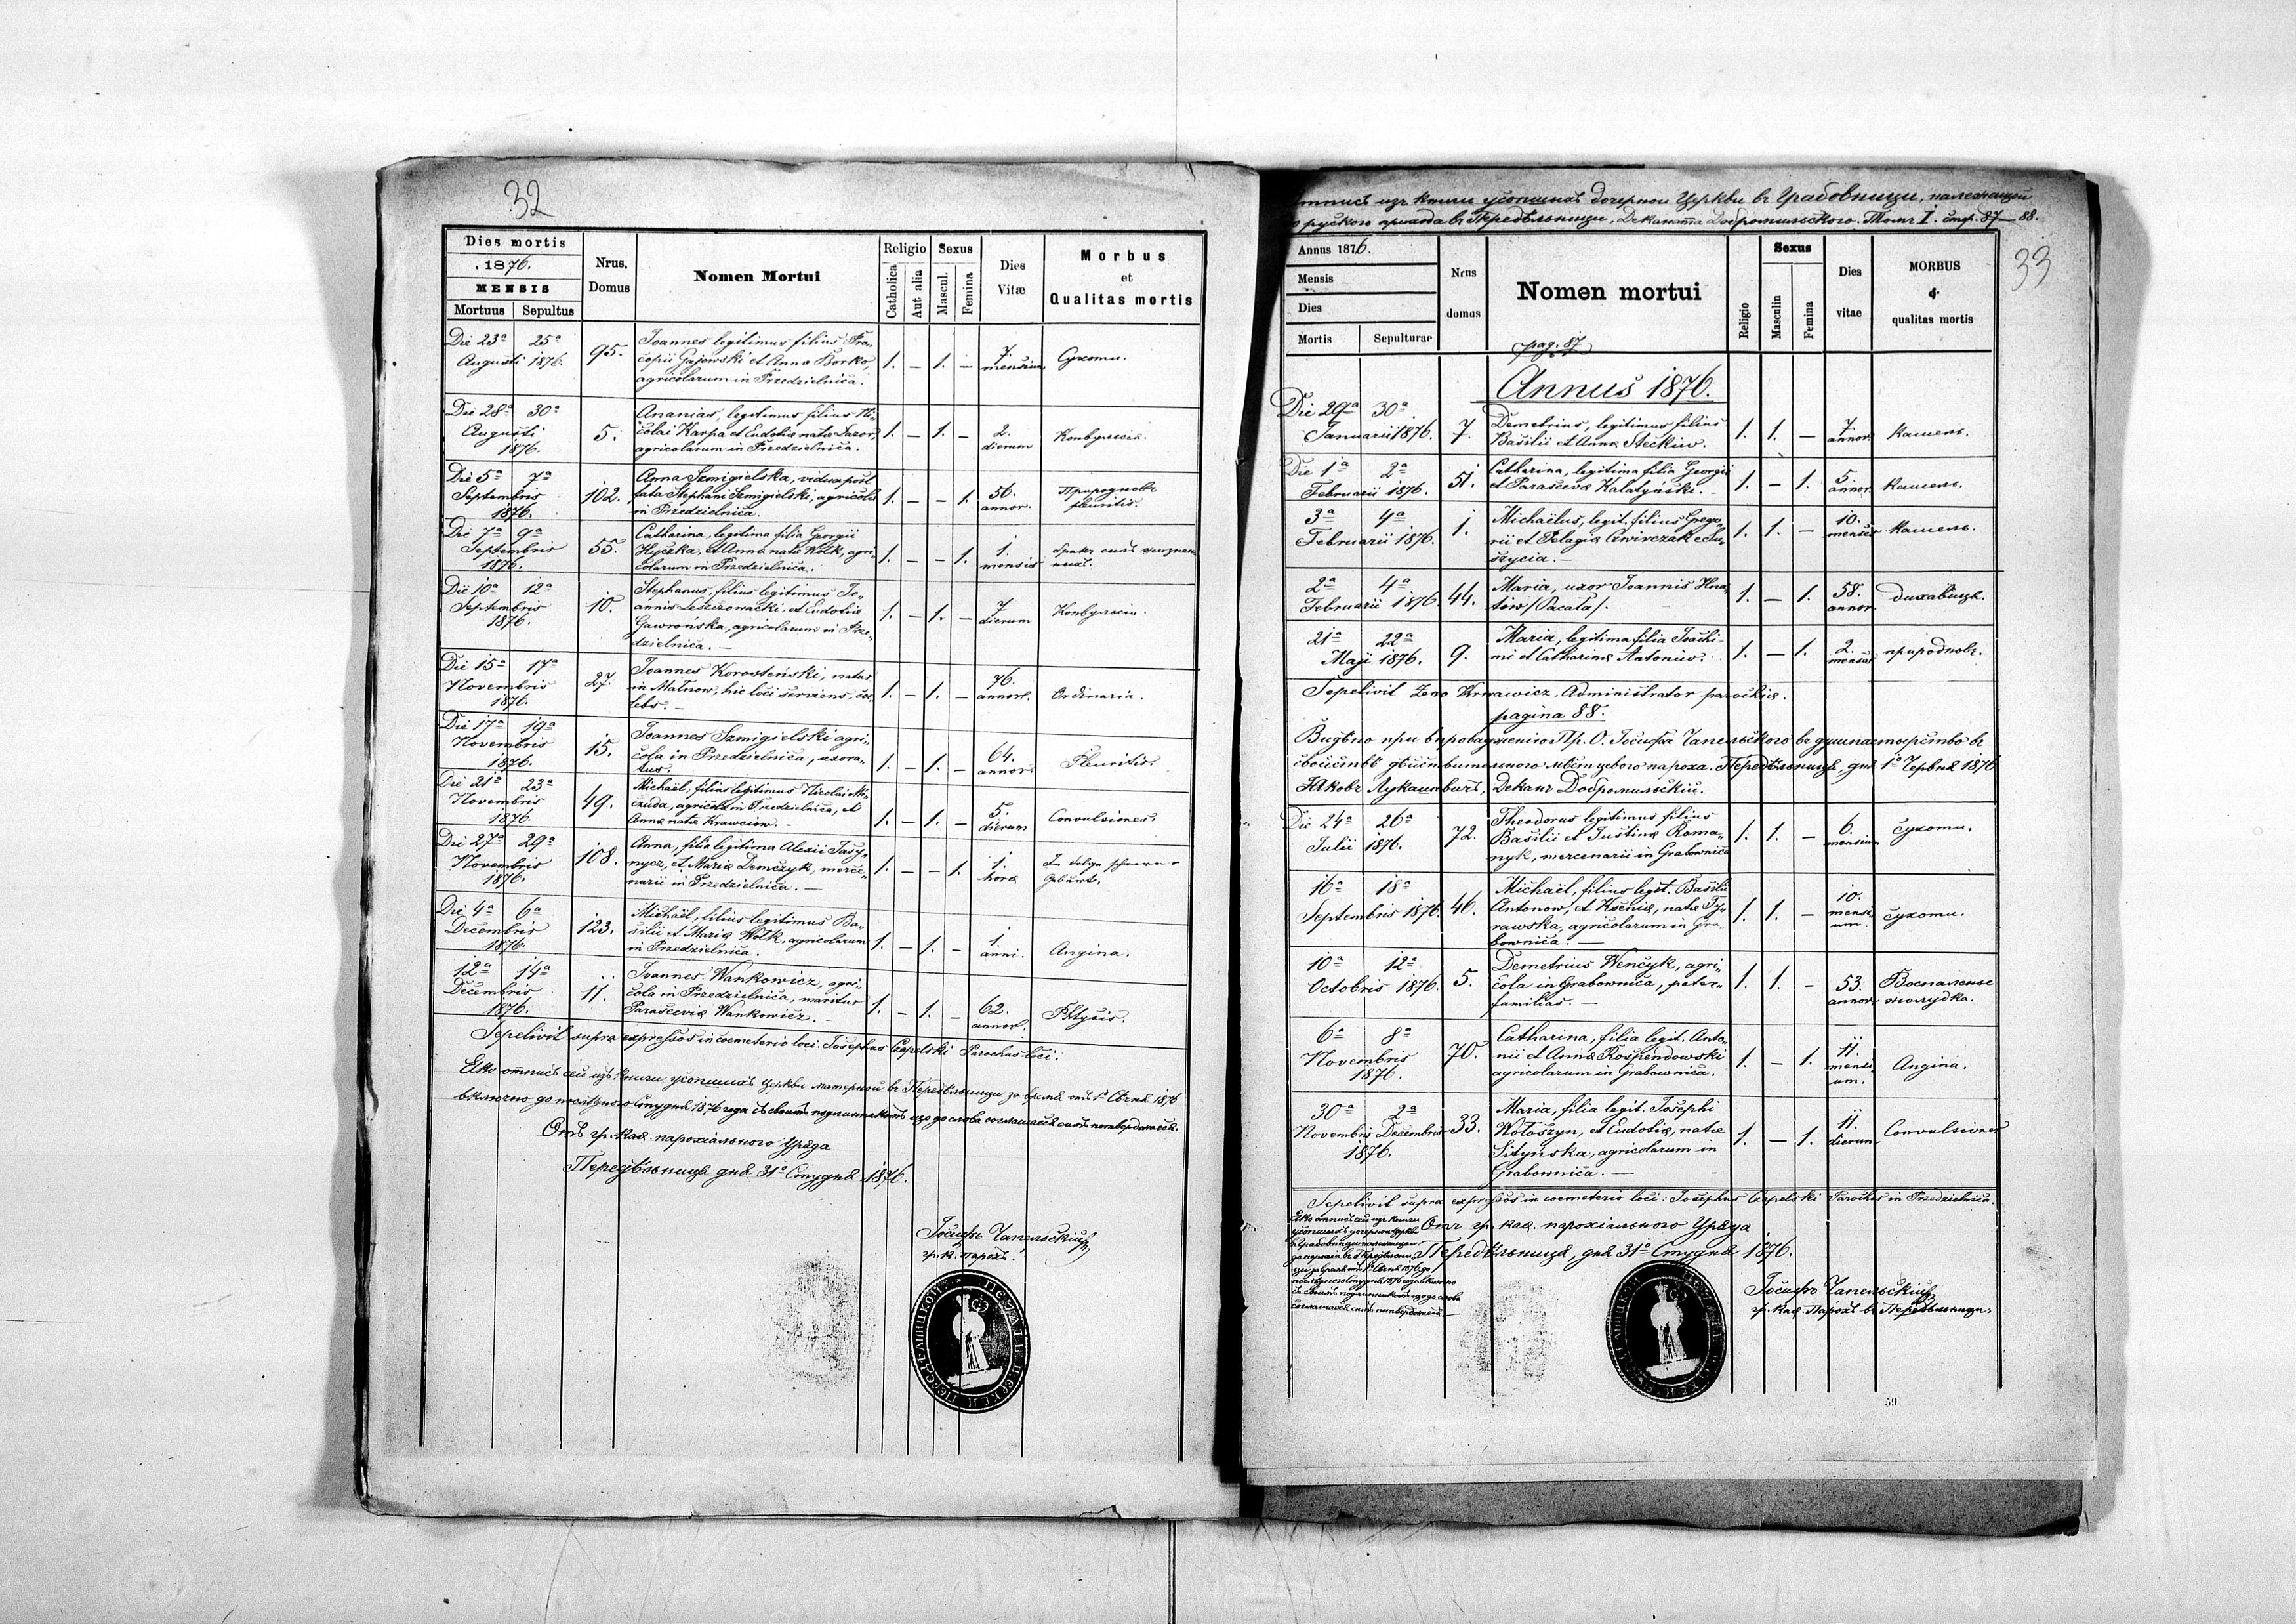 32
Dies mortis
1876.
MENSIS
Mortuus Sepultus
Nrus. Domus
Nomen Mortui
Religio
Catholica
Aut alia
Sexus
Mascul.
Femina
Dies Vitæ
Morbus
et
Qualitas mortis
Die 23ª 25ª
Augusti 1876.
95.
Joannes legitimus filius Pro-
copii Gajowski et Anna Borko,
agricolarum in Przedzielnica.
1. – 1. –
7. mensium
Сухоти.
Die 28ª 30ª
Augusti
1876.
5.
Ananias, legitimus filius Ni-
colai Karpa et Eudoxia natæ
agricolarum in Przedzielnica.
1. – 1. –
2. dierum
Конвульсія.
Die 5ª 7ª
Septembris
1876.
102.
Anna Szmigielska, vidua post
fata Stephani Szmigielski, agricolæ
in Przedzielnica.
1. – – 1.
56. annor.
pleuritis.
Die 7ª 9ª
Septembris
1876.
55.
Catharina, legitima filia Georgii
Hyczka, et Anna natæ Wolk, agri-
colarum in Przedzielnica.
1. – – 1.
1. mensis
Die 10ª 12ª
Septembris
1876.
10.
Stephanus, filius legitimus Jo-
annis Leszczowacki, et Eudoxia
Gawrońska, agricolarum in Prze-
dzielnica. –
1. – 1. –
7 dierum
Конвульсіи.
Die 15ª 17ª
Novembris
1876.
27.
Joannes Korosteński, natus
in Malnow, hic loci serviens, cœ-
lebs. –
1. – 1. –
76. annor.
Ordinaria.
Die 17ª 19ª
Novembris
1876.
15.
Joannes Szmigielski agri-
cola in Przedzielnica, uxora-
tus.
1. – 1. –
64. annor.
Pleuritis.
Die 21ª 23ª
Novembris
1876.
49.
Michaël, filius legitimus Nicolai Mi-
czuda, agricolæ in Przedzielnica, et
Anna natæ Krawciow. –
1. – 1. –
5. dierum
Convulsiones.
Die 27ª 29ª
Novembris
1876.
108.
Anna, filia legitima Alexii Tasy-
nycz, et Maria Demczyk, merce-
narii in Przedzielnica. –
1. – – 1.
1. hora
Geburt.
Die 4ª 6ª
Decembris
1876.
123.
Michaël, filius legitimus Ba-
silii et Maria Wolk, agricolarum
in Przedzielnica.
1. – 1. –
1. anni.
Angina.
12ª 14ª
Decembris
1876.
11.
Joannes Wankowicz, agri-
cola in Przedzielnica, maritus
Parasceviæ Wankowicz. –
1. – 1. –
62. annor.
Phtysis.
Sepelivit supra expressos in coemeterio loci: Josephus Czapelski Parochus loci.
Що отпись сей изъ книги усопшихъ церкви матерной въ Передѣльници за время отъ 1º Сѣчня 1876
включно до послѣдного Студня 1876 года съ своимъ подлинникомъ що до слова согласаєся симъ потверджаєся.
Отъ гр. каѳ. парохіального Уряда
Передѣльница дня 31º Студня 1876.
Іосифъ Чапельскій
гр. к. парохъ.
Отпись изъ книги усопшихъ дочерной Церкви въ Грабовници, належащей
до руского прихода въ Передѣльници, Деканата Добромильского. Томъ I. стр. 87–88.
33
Annus 1876.
Mensis
Dies
Mortis Sepulturae
Nrus domus
Nomen mortui
Religio
Sexus
Masculin
Femina
Dies vitae
MORBUS
&
qualitas mortis
pag. 87
Annus 1876.
Die 29ª 30ª
Januarii 1876.
7.
Demetrius, legitimus filius
Basilii et Anna Steckiw.
1. 1. –
7. annor.
Кашель.
Die 1ª 2ª
Februarii 1876.
51.
Catharina, legitima filia Georgii
et Parasceva Kalatyński. –
1. – 1.
5. annor.
Кашель.
3ª 4ª
Februarii 1876.
1.
Michaëlus, legit. filius Grego-
rii et Pelagia Czwirczak e Lu-
szycia. –
1. 1. –
10. mensium
Кашель.
2ª 4ª
Februarii 1876.
44.
Maria, uxor Joannis Hna-
tow /Pacała/.
1. – 1.
58. annor.
Духавиця.
21ª 22ª
Maji 1876.
9.
Maria, legitima filia Joachi-
mi et Catharina Antoniw.
1. – 1.
2. mensium
природновъ.
Sepelivit Zeno Krwawicz, Administrator parochiæ.
pagina 88.
Видѣно при впроваджению Пр. О. Іосифа Чапельского въ душпастырство въ
своиствѣ дѣйствительного мѣстцевого пароха. Передѣльница, дня 1º Червня 1876
Яковъ Лукашевичъ, Деканъ Добромильскій.
Die 24ª 26ª
Julii 1876.
72.
Theodorus legitimus filius
Basilii et Justina Roma-
nyk, mercenarii in Grabownica
1. 1. –
6. mensium
Сухоти.
16ª 18ª
Septembris 1876.
46.
Michaël, filius legit. Basilii
Antonow, et Ksenia, natæ Ty-
rawska, agricolarum in Gra-
bownica. –
1. 1. –
10. mensi-
um.
Сухоти.
10ª 12ª
Octobris 1876.
5.
Demetrius Wenčyk, agri-
cola in Grabownica, pater-
familias. –
1. 1. –
53. annor.
Воспаленіе
жолудка.
6ª 8ª
Novembris
1876.
70.
Catharina, filia legit. Anto-
nii et Anna Rospendowski
agricolarum in Grabownica.
1. – 1.
11. mensi-
um.
Angina.
30ª 2ª
Novembris Decembris
1876.
33.
Maria, filia legit. Josephi
Wołoszyn, et Eudoxia, natæ
Sityńska, agricolarum in
Grabownica. –
1. – 1.
11. dierum
Convulsiones
Sepelivit supra expressos in coemeterio loci: Josephus Czapelski Parochus in Przedzielnica.
Що отпись сей изъ книги
усопшихъ дочерной церкви
въ Грабовници належащои
до парохіи въ Передѣльни-
ци за время отъ 1º Сѣчня 1876 до
послѣдного Студня 1876 года включно
съ своимъ подлинникомъ що до слова
согласаєся симъ потверджаєся –
Отъ гр. каѳ. парохіального Уряда
Передѣльница, дня 31º Студня 1876.
Іосифъ Чапельскій
гр. каѳ. Парохъ въ Передѣльници.
59